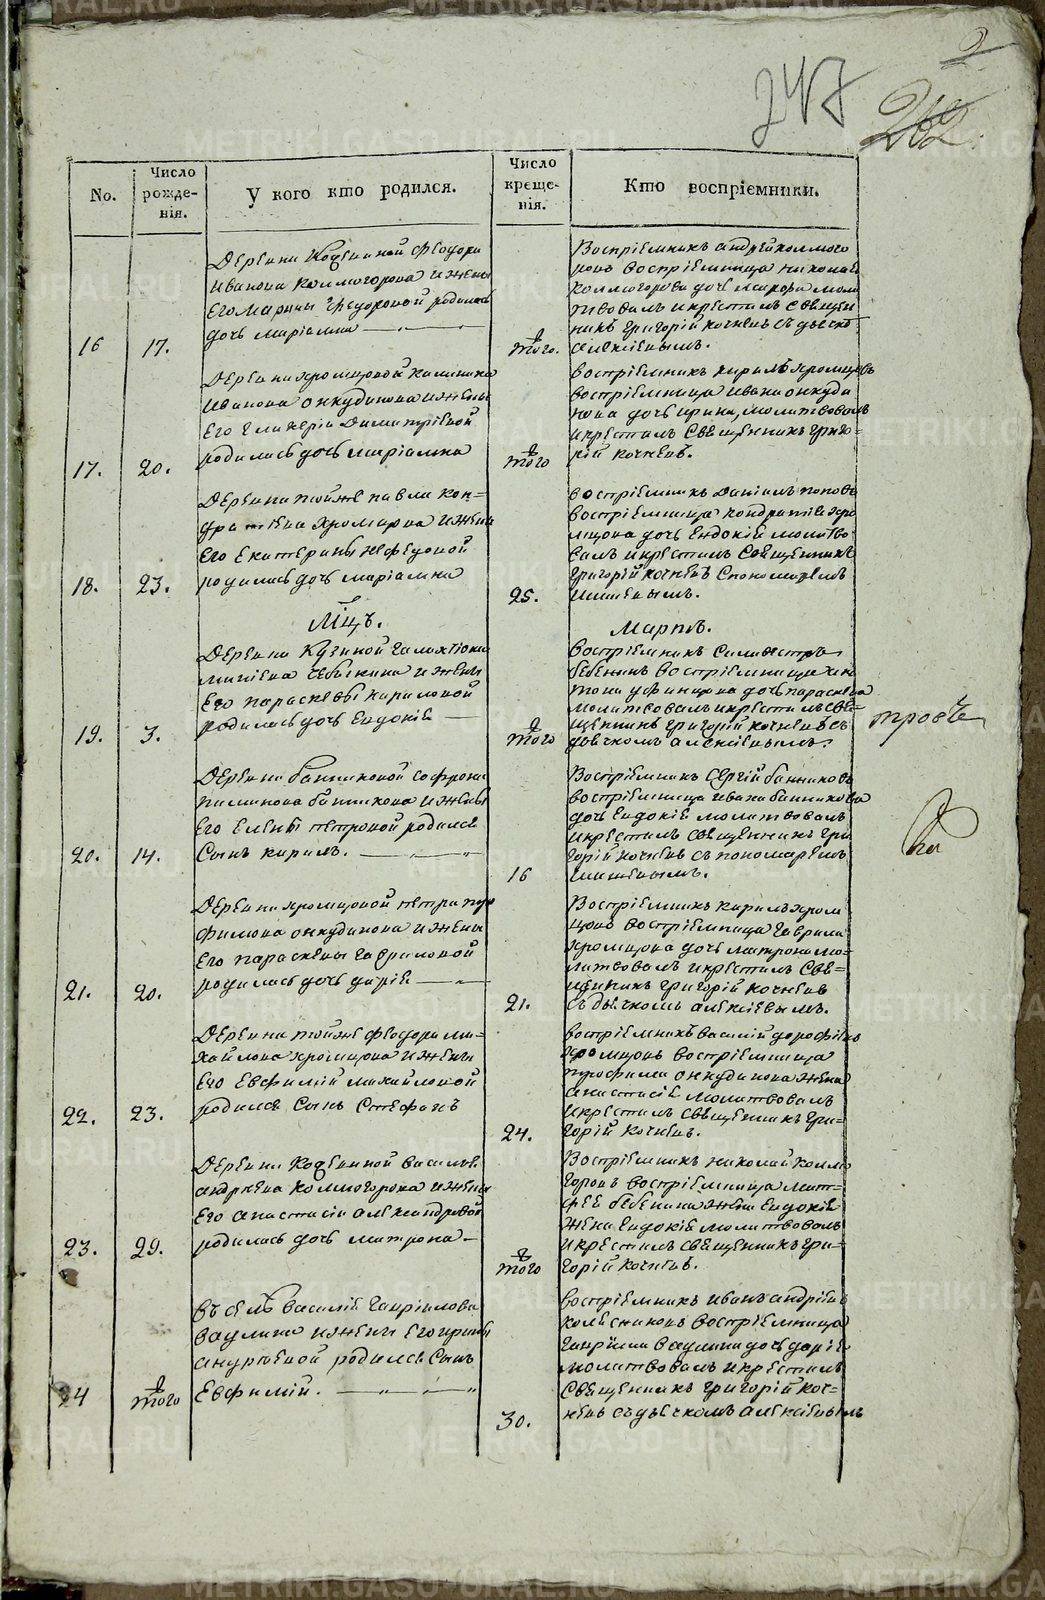 2
247
262.
No.
Число рожденія.
У кого кто родился.
Число крещенія.
Кто воспріемники.
16
17.
Деревни Кодинной Феодора
Иванова Колмогорова и жены
его Марины Федоровой родилась
дочь Маріамна
того.
Воспріемникъ Андрей Колмого
ровъ воспріемница Николая
Колмогорова дочь
молитвовалъ и крестилъ священ
никъ Григорій Кочневъ съ дьячко
Алексіевымъ.
17.
20.
Деревни Хромцовой Калинника
Иванова Онкудинова и жены
его Гликеріи Димитріевой
родилась дочь Маріамна
того
Воспріемникъ Кирилъ Хромцовъ
воспріемница Ивана Онкуди
нова дочь Ирина, молитвовалъ
и крестилъ священникъ Григо=
рій Кочневъ.
18.
23.
Деревни тойже Павла Кон=
дратьева Хромцова и жены
его Екатерины Нефедовой
родилась дочь Маріамна
25.
Воспріемникъ Даніилъ Попова
воспріемница Кондратія Хро
мцова дочь Евдокія молитво
валъ и крестилъ священникъ
Григорій Кочневъ с пономаремъ
Мцъ.
Мартъ.
19.
3.
Деревни Кузиной Галактіона
его Параскевы Кириловой
родилась дочь Евдокія
того
Воспріемникъ Силивестръ
Бебенинъ воспріемница
дочь Параскева
молитвовалъ и крестилъ свя=
щенникъ Григорій Кочневъ съ
дьячкомъ Алексіевымъ.
трое
20.
14.
Деревни Банниковой Софрона
Банникова и жены
его Елены Петровой родился
сынъ Кирилъ.
16
Воспріемникъ Сергій Банниковъ
воспріемница Ивана Банникова
дочь Евдокія молитвовалъ
и крестилъ священникъ Гри
горій Кочневъ съ пономаремъ
21.
20.
Деревни Хромцовой Петра Тро
фимова Онкудинова и жены
его Параскевы Гавриловой
родилась дочь Дарія
21.
Воспріемникъ Кирилъ Хром
цовъ воспріемница Гаврила
Хромцова дочь Матрона мо=
литвовалъ и крестилъ свя=
щенникъ Григорій Кочневъ
съ дьячкомъ Алексіевымъ.
22.
23.
Деревни тойже Феодора Ми=
хайлова Хромцова и жены
его Евфиміи Михайловой
родился сынъ Стефанъ
24.
Воспріемникъ Василій Дорофіевъ
Хромцовъ воспріемница
Трофима Онкудинова жена
Анастасія молитвовалъ
и крестилъ священникъ Гри=
горій Кочневъ.
23.
29.
Деревни Кодинной Василья
Андреева Колмогорова и жены
его Анастасіи Александровой
родилась дочь Матрона
того
Воспріемникъ Николай Колмо
горовъ воспріемница Мат=
фея Бебенина жена Евдокія
жена Евдокія молитвовалъ
и крестилъ священникъ Гри=
горій Кочневъ.
24
того
Въ селѣ Василія Гавріилова
Ваулина и жены его Ирины
Андреевой родился сынъ
Евфимій.
30.
Воспріемникъ Иванъ Андріевъ
Колесниковъ воспріемница
Гавріила Ваулина дочь Дарія
молитвовалъ и крестилъ
священникъ Григорій Коч=
невъ съ дьячкомъ Алексіевымъ
METRIKI.GASO-URAL.RU